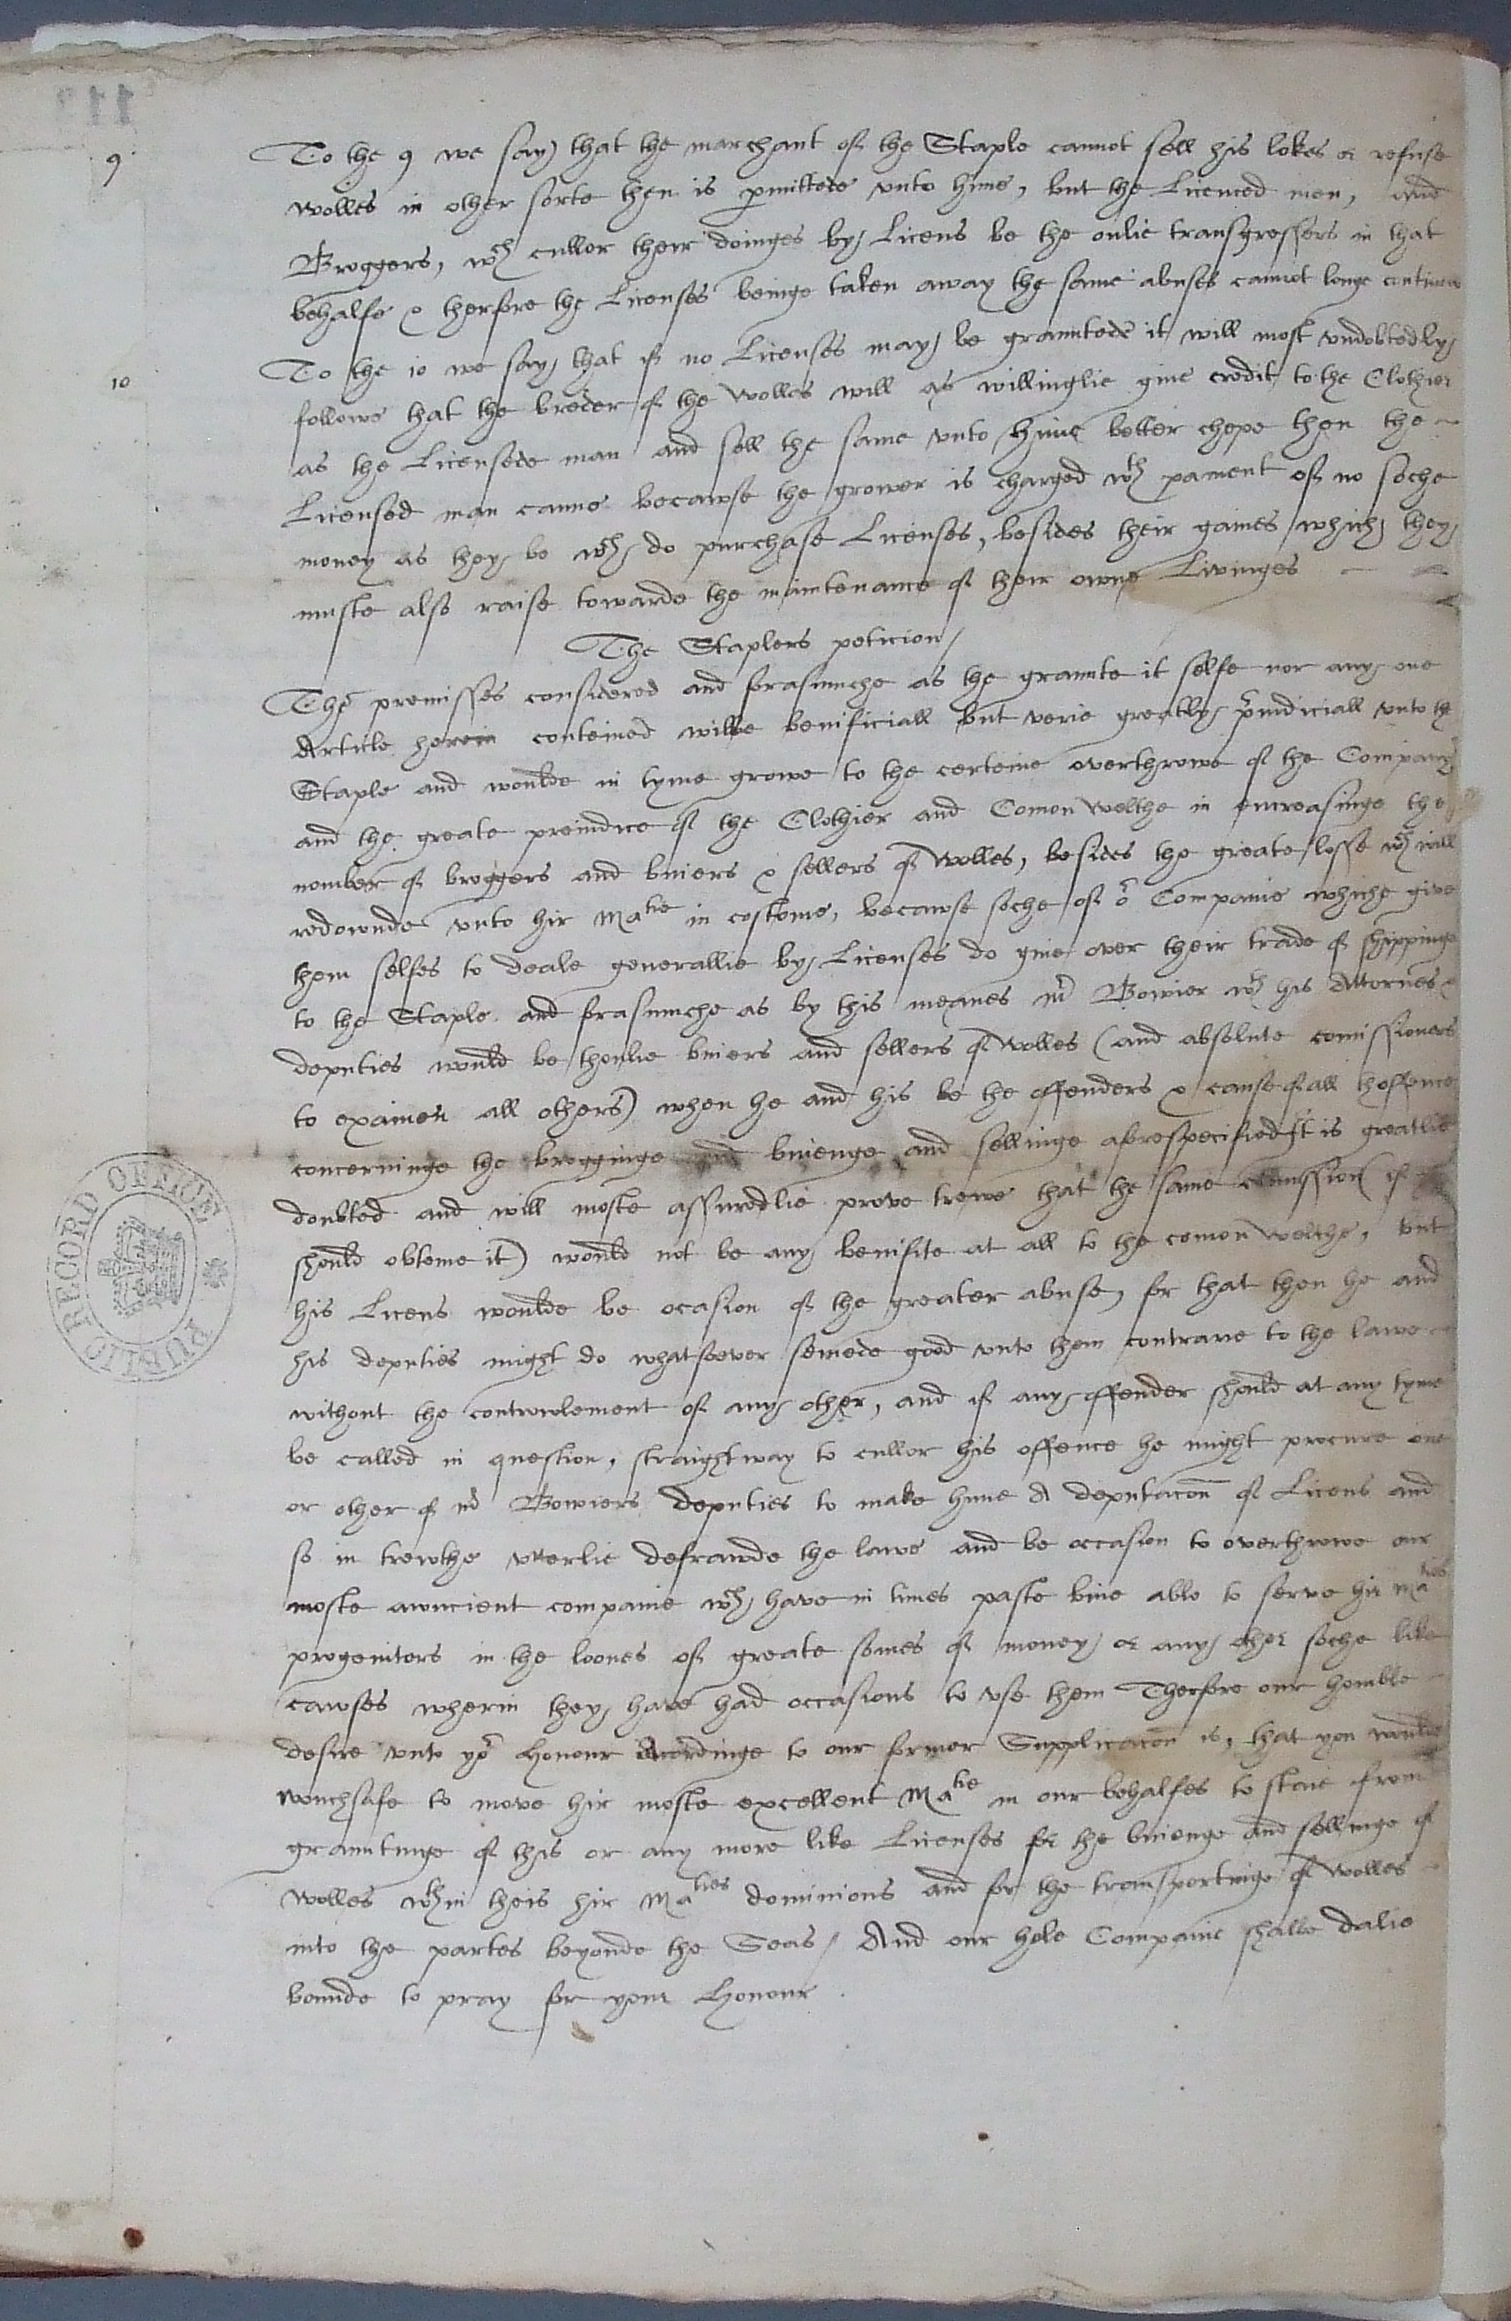 9 To the 9 we say that the marchant of the Staple cannot sell his lokes or refuse
wolles in other sorte then is pmittede vnto hime, but the Licenced men, and
Broggers, wch cullor their doinges by Licens be the onlie transgressers in that
behalfe & therfore the Licenses beinge taken away the same abuses cannot longe continew
10 To the 10 we say that if no Licenses may be grauntede it will most vndobtedly
followe that the breder of the wolles will as willinglie giue credit to the Clothier
as the Licensede man and sell the same vnto hime better chepe then the
Licensed man canne becawse the grower is charged wth pament of no soche
money as they be wch do purchase Licenses, besides their gaines which they
muste also raise towarde the maintenance of their owne Livinges
The Staplers peticion
The premisses considered and forasmuche as the graunte it selfe nor any one
Article herein conteined wilbe benificiall but verie greatly preiudiciall vnto the
Staple and woulde in tyme growe to the certeine overthrowe of the Company
and the greate preiudice of the Clothier and Comon Welthe in encreasinge the
nomber of broggers and buiers & sellers of wolles, besides the greate losse wch will
redownde vnto hir Matie in costome, becawse soche of or Companie whiche give
them selfes to deale generallie by Licenses do giue over their trade of shippinge
to the Staple and forasmuche as by this meanes mr Bowier wth his Attornes &
deputies would be thonlie buiers and sellers of wolles (and absolute comissioners
to examen all others) when he and his be the offenders & cause of all thoffence
concerninge the brogginge and buienge and sellinge aforespecified It is greatlie
doubted and will moste assuredlie prove trewe that the same comission (if
should obteine it) would not be any benifite at all to the comon welthe, but
his Licens woulde be ocasion of the greater abuse, for that then he and
his deputies might do whatsoever semede good vnto them contrarie to the lawe
without the controwlement of any other, and if any offender should at any tyme
be called in question, straightway to cullor his offence he might procure one
or other of mr Bowiers deputies to make hime A deputacon of Licens and
so in trewthe vtterlie defrawde the lawe and be occasion to overthrowe our
moste auncient companie wch have in times paste bine able to serve hir Maties
progenitors in the loones of greate somes of money or any other soche like
cawses wherin they have had occasions to vse them Therfore our homble
desire vnto yor Honour Accordinge to our former Supplicacon is, that you woulde
vouchsafe to move hir moste excellent Matie in our behalfes to staie from
grauntinge of this or any more like Licenses for the buienge and sellinge of
wolles wthin theis hir Maties dominions and for the transportinge of wolles
into the partes beyonde the Seas / And our hole Companie shalbe dalie
bounde to pray for your Honour .
PUBLIC RECORD OFFICE